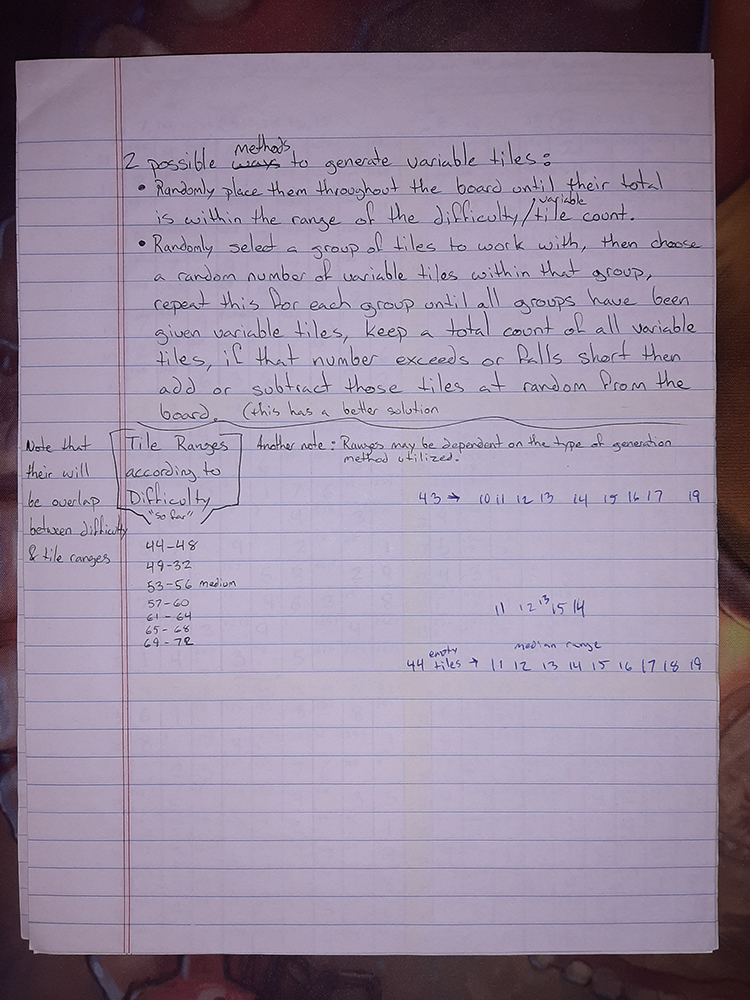 methods
2 possible ways to generate variable tiles:
• Randomly place them throughout the board until their total
variable
is within the range of the difficulty/tile count.
• Randomly select a group of tiles to work with, then choose
a random number of variable tiles within that group,
repeat this for each group until all groups have been
given variable tiles, keep a total count of all variable
tiles, if that number exceeds or falls short then
add or subtract those tiles at random from the
board. (this has a better solution
Note that
their will
be overlap
between difficulty
& tile ranges
Tile Ranges
according to
Difficulty
"so far"
Another note: Ranges may be dependent on the type of generation
method utilized.
43 → 10 11 12 13 14 15 16 17 19
44-48
49-32
53-56 medium
57-60
61-64
65-68
69-72
11 12 13 15 14
empty median range
44 tiles → 11 12 13 14 15 16 17 18 19